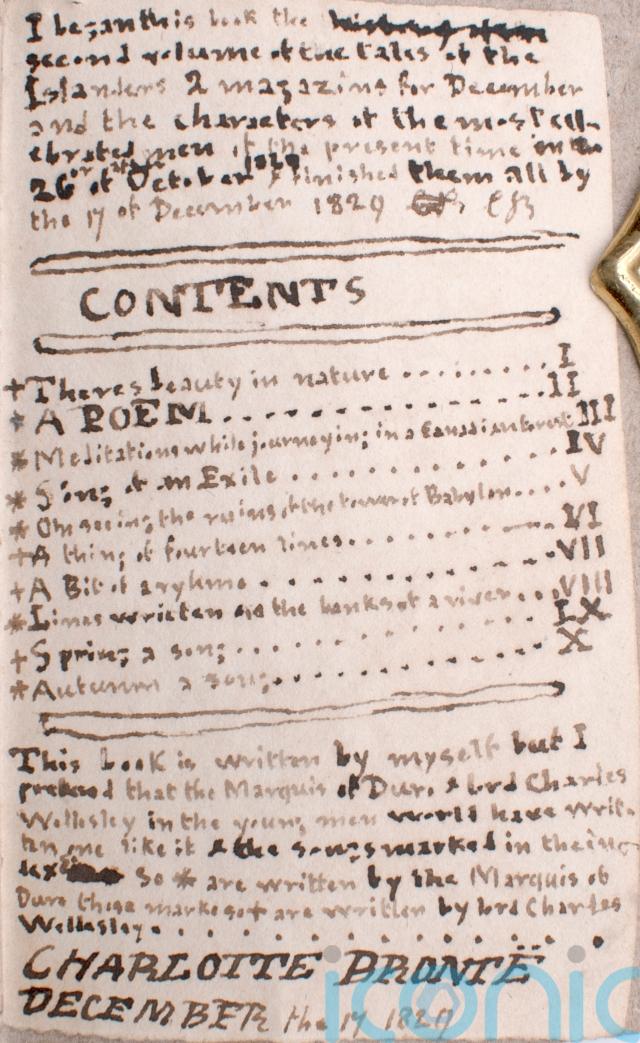 I began this book the
second volume of the Tales of the
Islanders 2 magazins for December
and the characters of the most cel-
ebrated men of the present time in the
26 of October 1829 & finished them all by
the 17 of December 1829 CB
CONTENTS
+ Theres beauty in nature .......... I
* A POEM .......... II
* Meditations while journeying in a Canadian forest III
* Song of an Exile .......... IV
* On seeing the ruins of the tower of Babylon .... V
+ A thing of fourteen lines .......... VI
+ A Bit of a ryhme .......... VII
* Lines written on the banks of a river ... VIII
+ Spring a song .......... IX
* Autumn a song .......... X
This book is written by myself but I
pretend that the Marquis of Duro & lord Charles
Wellesley in the young men world have writ-
ten one like it & the songs marked in the in-
dex so * are written by the Marquis of
Duro those marked so + are written by lord Charles
Wellesley ..........
CHARLOTTE BRONTË
DECEMBER the 17 1829
iconic